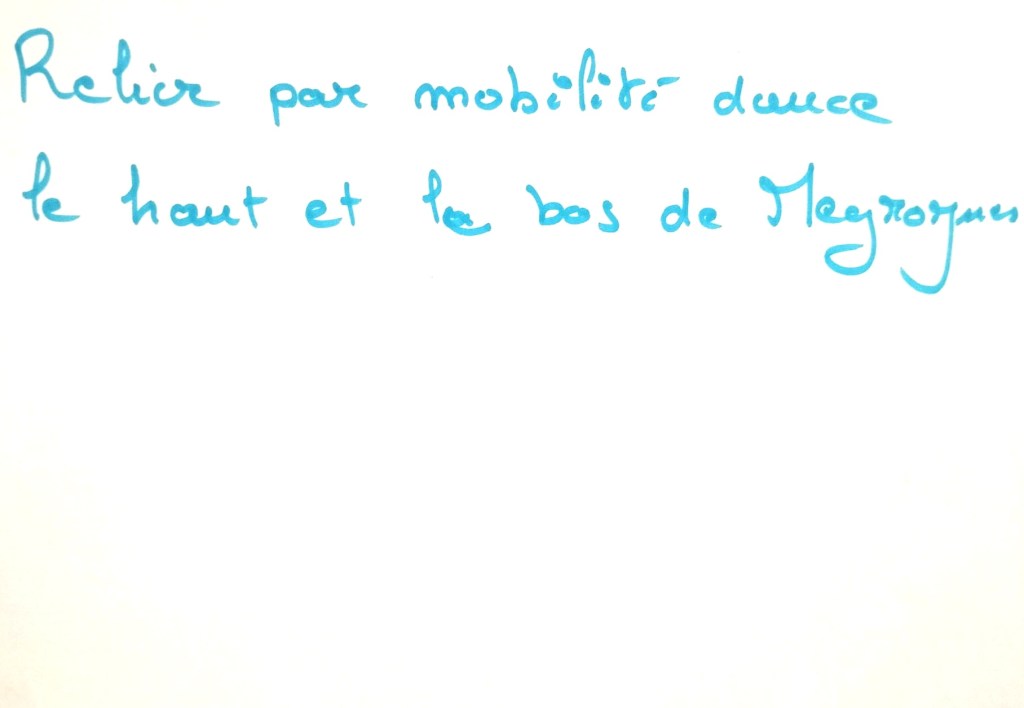 Relier par mobilité douce
le haut et le bas de Meyrargues